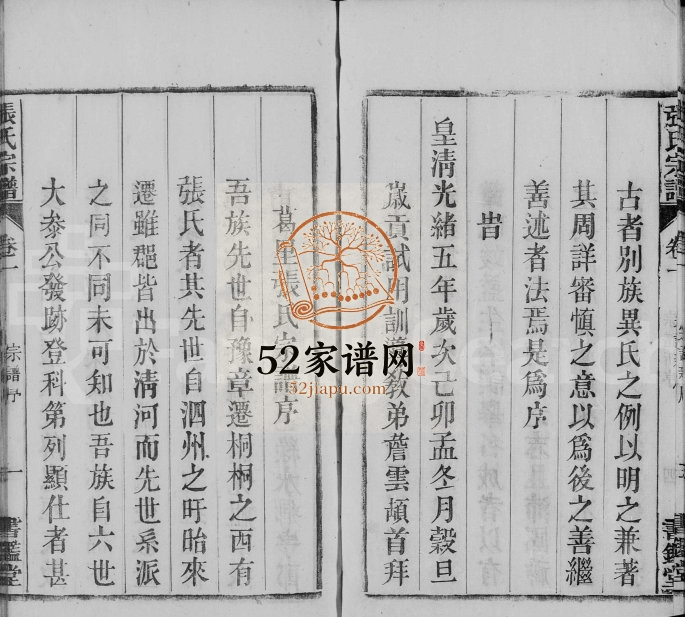 古者別族異氏之例以明之兼著
其周詳審慎之意以為後之善繼
善述者法焉是爲序
旹
皇清光緒五年歲次己卯孟冬月穀旦
歲貢試用訓導教弟詹雲頡首拜
張氏宗譜
卷一
書鑑堂
葛
張氏宗譜序
吾族先世自豫章遷桐桐之西有
張氏者其先世自泗州之盱眙來
遷雖郡皆出於清河而先世系派
之同不同未可知也吾族自六世
大叅公發跡登科第列顯仕者甚
張氏宗譜
卷一
宗譜序
一
書鑑堂
52家谱网
52jiapu.com